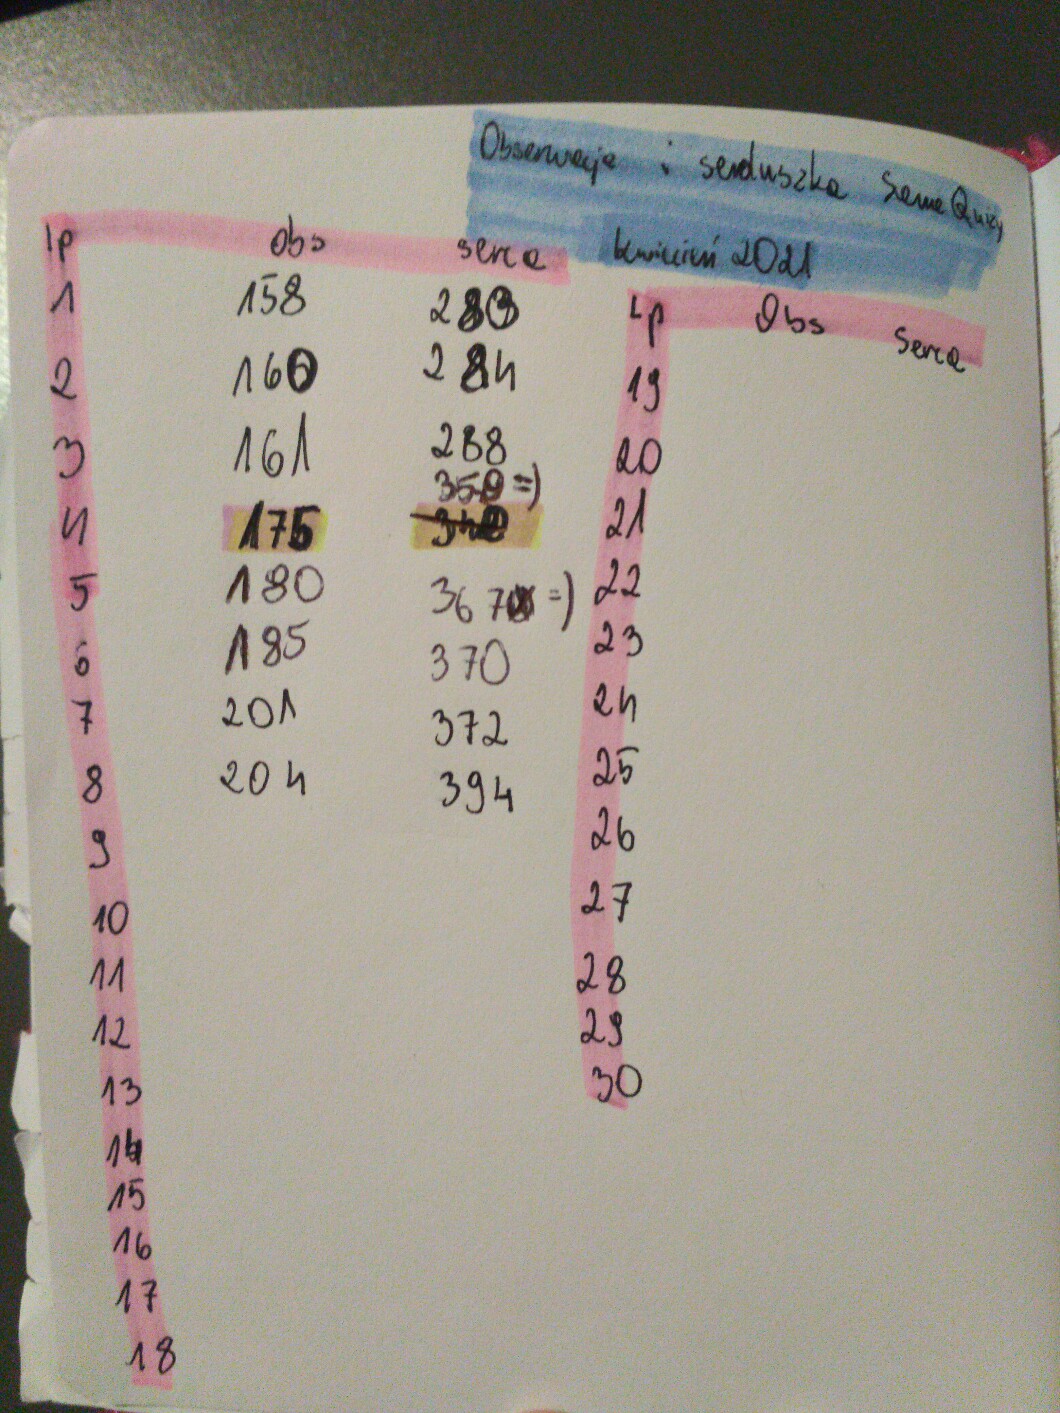 Obserwacje i serduszka Same Quizy
kwiecień 2021
lp obs serca
1 158 283
2 160 284
3 161 288
350 =)
4 175
5 180 367 =)
6 185 370
7 201 372
8 204 394
9
10
11
12
13
14
15
16
17
18
Lp Obs Serca
19
20
21
22
23
24
25
26
27
28
29
30